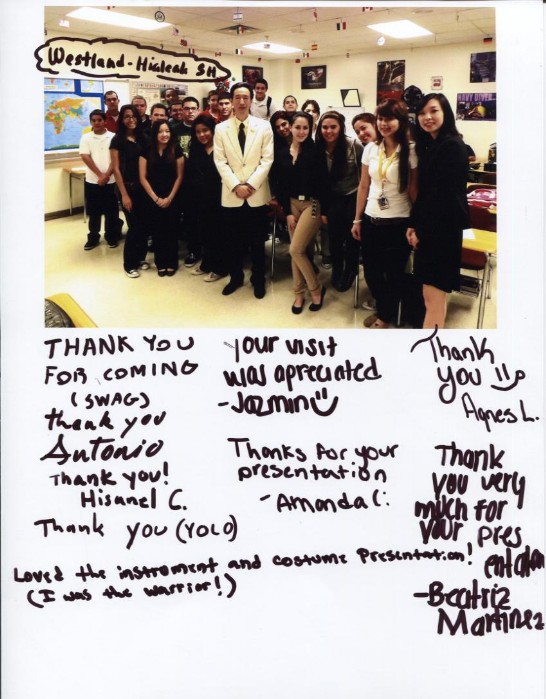 Westland-Hialeah SH
NAVY DIVER
THANK YOU
FOR COMING
(SWAG)
thank you
Antonio
Thank you!
Hisanel C.
Thank you (YOLO)
Your visit
was apreciated
-Jazmin
Thanks for your
presentation
-Amanda C.
Thank
you
Agnes L.
Thank
you very
much for
your pres
entation
-Beatriz
Martinez
Loved the instrument and costume Presentation!
(I was the warrior!)